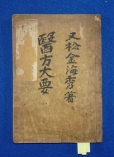 又松金海秀著
醫方大要